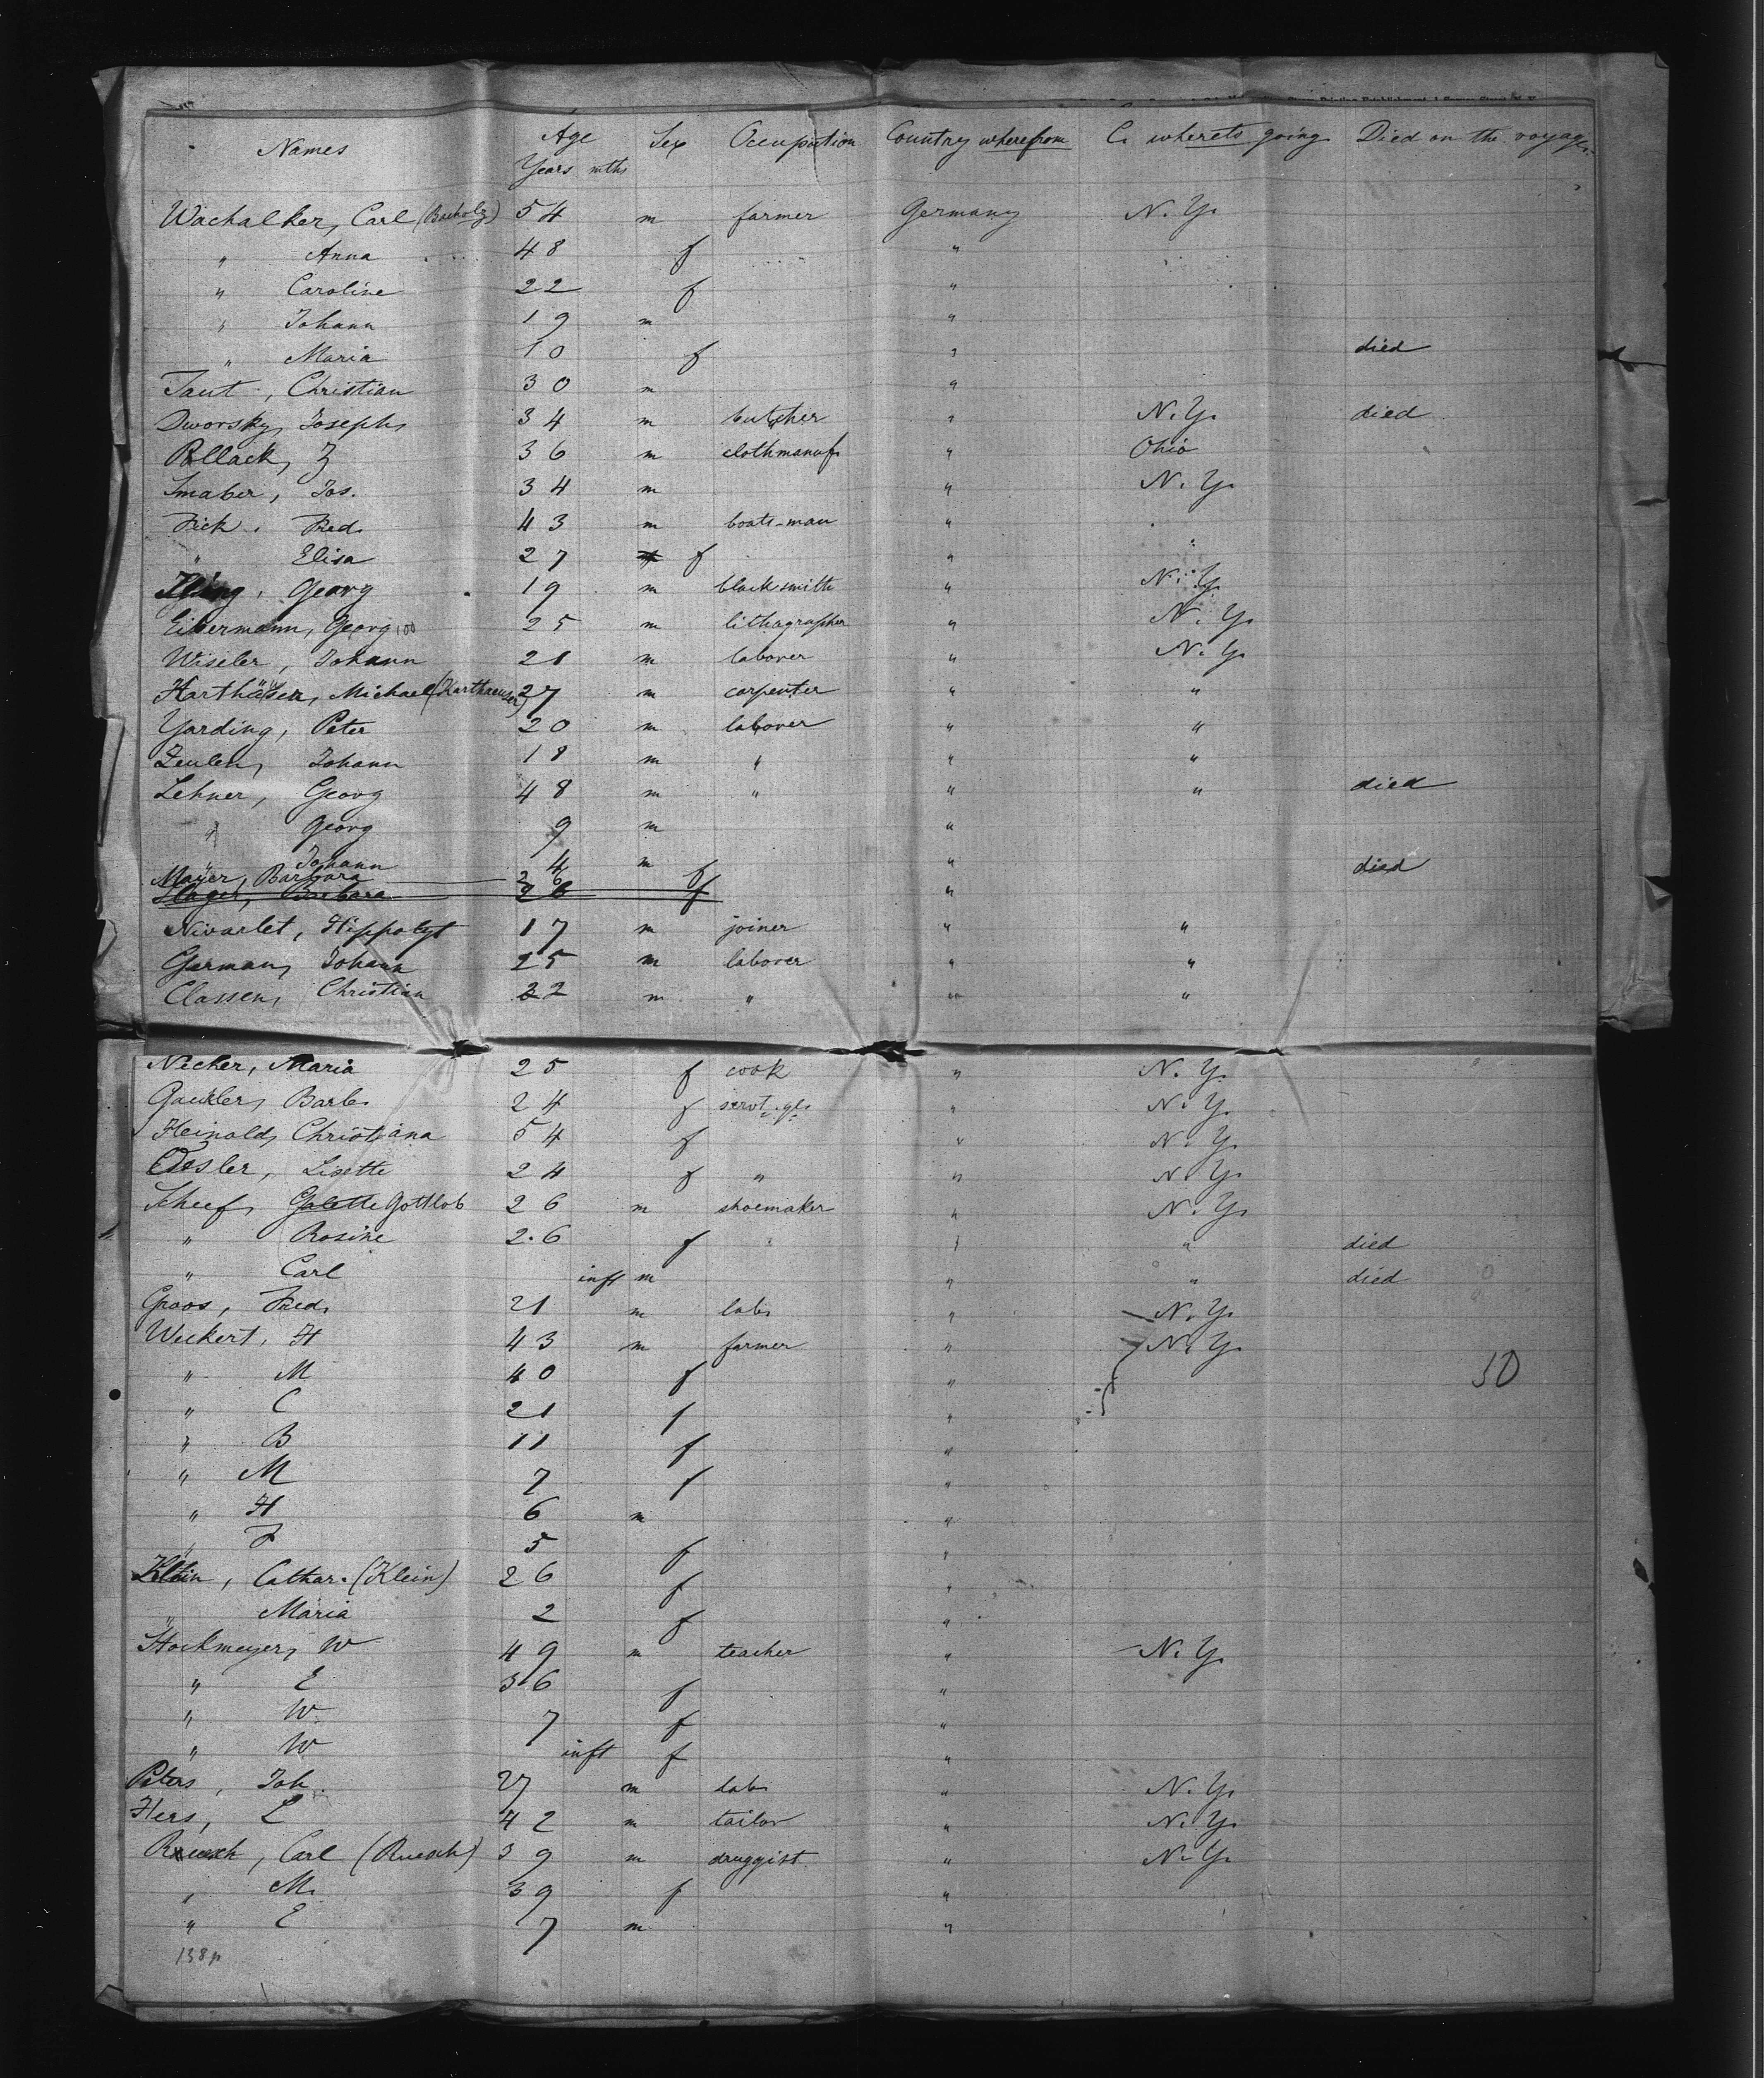 Names Age Sex Occupation Country wherefrom C. whereto going Died on the voyage.
Years mths
Wachalker, Carl (Bacholz) 54 m farmer Germany N.Y.
" Anna 48 f "
" Caroline 22 f "
" Johann 19 m "
" Maria 10 f " died
Taut, Christian 30 m "
Dworsky, Joseph 34 m butcher " N.Y. died
Pollack, Z 36 m clothmanuf. " Ohio
Smaber, Jos. 34 m " N.Y.
Frick, Fred. 43 m boats-man " "
" Elisa 27 f " "
Georg 19 m blacksmith " N.Y.
Eibermann, Georg 100 25 m lithographer " N.Y.
Wiseler, Johann 21 m laborer " N.Y.
Harthäuser, Michael (Karthaeuser) 27 m carpenter " "
Yarding, Peter 20 m laborer " "
Zeulen, Johann 18 m " " "
Lehner, Georg 48 m " " " died
" Georg 9 m "
" Johann 4 m " died
Mayer, Barbara 26 f
Barbara 26 f "
Nivarlet, Hippolyt 17 m joiner " "
German, Johann 25 m laborer " "
Classen, Christian 22 m " " "
Necker, Maria 25 f cook " N.Y.
Gaukler, Barb. 24 f servt. gl. " N.Y.
Heinold, Christiana 54 f " N.Y.
Oesler, Lisette 24 f " " N.Y.
Scheef, Galotte Gottlob 26 m shoemaker " N.Y.
" Rosine 26 f " " " died
" Carl inft m " " died
Groos, Fred. 21 m lab. " N.Y.
Weckert, H 43 m farmer " N.Y.
" M 40 f " 10
" C 21 f "
" B 11 f "
" M 7 f "
" H 6 m "
" F 5 f "
Klein, Cathar. (Klein) 26 f "
" Maria 2 f "
Stockmeyer, W 49 m teacher " N.Y.
" E 36 f "
" W 7 f "
" W inft f "
Peters, Joh. 27 m lab. " N.Y.
Hers, L 42 m tailor " N.Y.
Ruesch, Carl (Ruesch) 39 m druggist " N.Y.
" M. 39 f "
" E 7 m "
138p